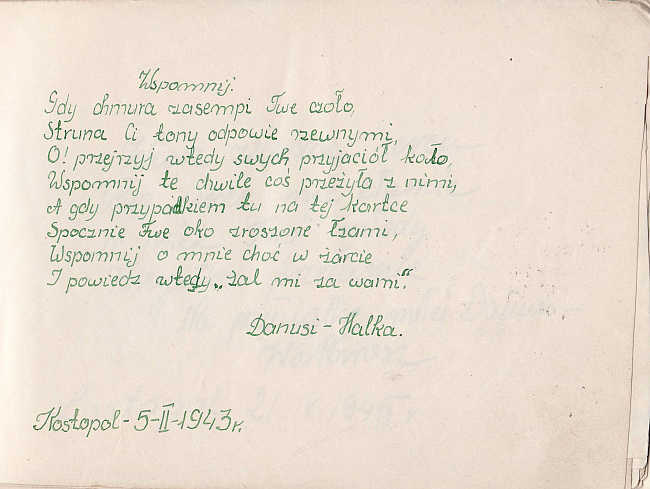 Wspomnij.
Gdy chmura zasempi Twe czoło,
Struna Ci tony odpowie rzewnymi,
O! przejrzyj wtedy swych przyjaciół koło,
Wspomnij te chwile coś przeżyła z nimi,
A gdy przypadkiem tu na tej kartce
Spocznie Twe oko zroszone łzami,
Wspomnij o mnie choć w żarcie
I powiedz wtedy „żal mi za wami".
Danusi - Halka.
Kostopol - 5-II-1943r.